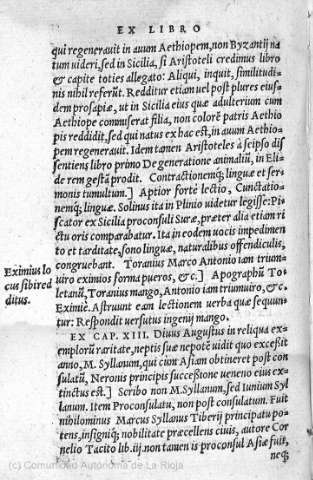 EX LIBRO
qui regenerauit in auum Aethiopem, non Byzantij na
tum uideri, sed in Sicilia, si Aristoteli credimus libro
& capite toties allegato: Aliqui, inquit, similitudi-
nis nihil referũt. Redditur etiam uel post plures eius-
dem prosapiæ, ut in Sicilia eius quæ adulterium cum
Aethiope commiserat filia, non colorẽ patris Aethio
pis reddidit, sed qui natus ex hac est, in auum Aethio-
pem regenerauit. Idem tamen Aristoteles à seipso dis
sentiens libro primo De generatione animaliũ, in Eli-
de rem gestã prodit. Contractionemq; linguæ et ser-
monis tumultum.] Aptior fortè lectio, Cunctatio-
nemq; linguæ. Solinus ita in Plinio uidetur legisse: Pis
cator ex Sicilia proconsuli Suræ, præter alia etiam ri
ctu oris comparabatur. Ita in eodem uocis impedimen
to et tarditate, sono linguæ, naturalibus offendiculis,
congruebant. Toranius Marco Antonio iam trium-
uiro eximios forma pueros, & c.] Apographũ To-
letanũ, Toranius mango, Antonio iam triumuiro, & c.
Eximiè. Astruunt eam lectionem uerba quæ sequun-
tur: Respõdit uersutus ingenij mango.
Eximius lo
cus sibi red
ditus.
EX CAP. XIII. Diuus Augustus in reliqua ex-
emplorũ raritate, neptis suæ nepotẽ uidit quo excessit
anno, M. Syllanum, qui cùm Asiam obtineret post con
sulatũ, Neronis principis successione ueneno eius ex-
tinctus est.] Scribo non M. Syllanum, sed Iunium Syl
lanum. Item Proconsulatu, non post consulatum. Fuit
nihilominus Marcus Syllanus Tiberij principatu po-
tens, insigniq; nobilitate præcellens ciuis, autore Cor
nelio Tacito lib. iij. non tamen is proconsul Asiæ fuit,
neq;
(c) Comunidad Autónoma de La Rioja